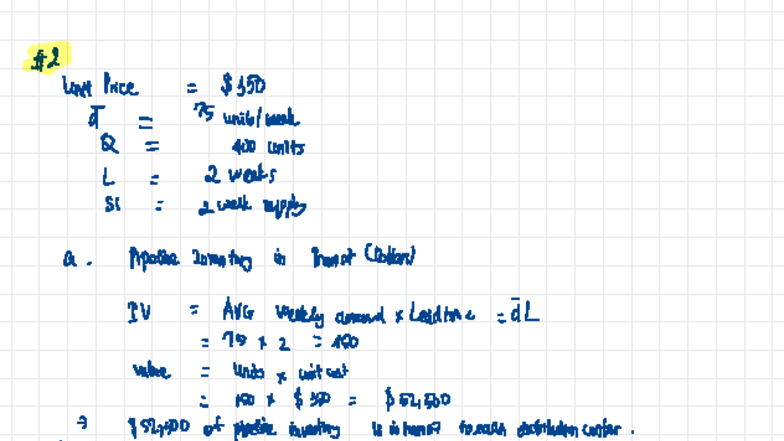 #2
Unit Price = $350
d̄ = 75 units/week
Q = 400 units
L = 2 weeks
SS = 2 week supply
a. Pipeline Inventory in Transit (Dollars)
IV = AVG weekly demand x Leadtime = d̄L
= 75 x 2 = 150
value = units x unit cost
= 150 x $350 = $52,500
→ $52,500 of pipeline inventory is in transit to each distribution center.